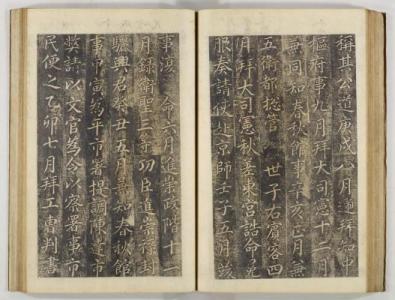 稱其公道庚戌八月通拜知中
樞府事九月拜大司憲十二月
兼同知春秋館事辛亥正月兼
五衛都摠管 世子右賓客四
月拜大司憲秋差東宮誥命
服奏請使赴京師壬子五月
事 命六月進崇政階十二
月錄衛聖三等功臣進崇祿封
興君癸丑五月兼知春秋館
事甲寅爲平市署提調陳達市
獘請以文官爲令以察署事市
民便之乙卯七月拜工曹判書